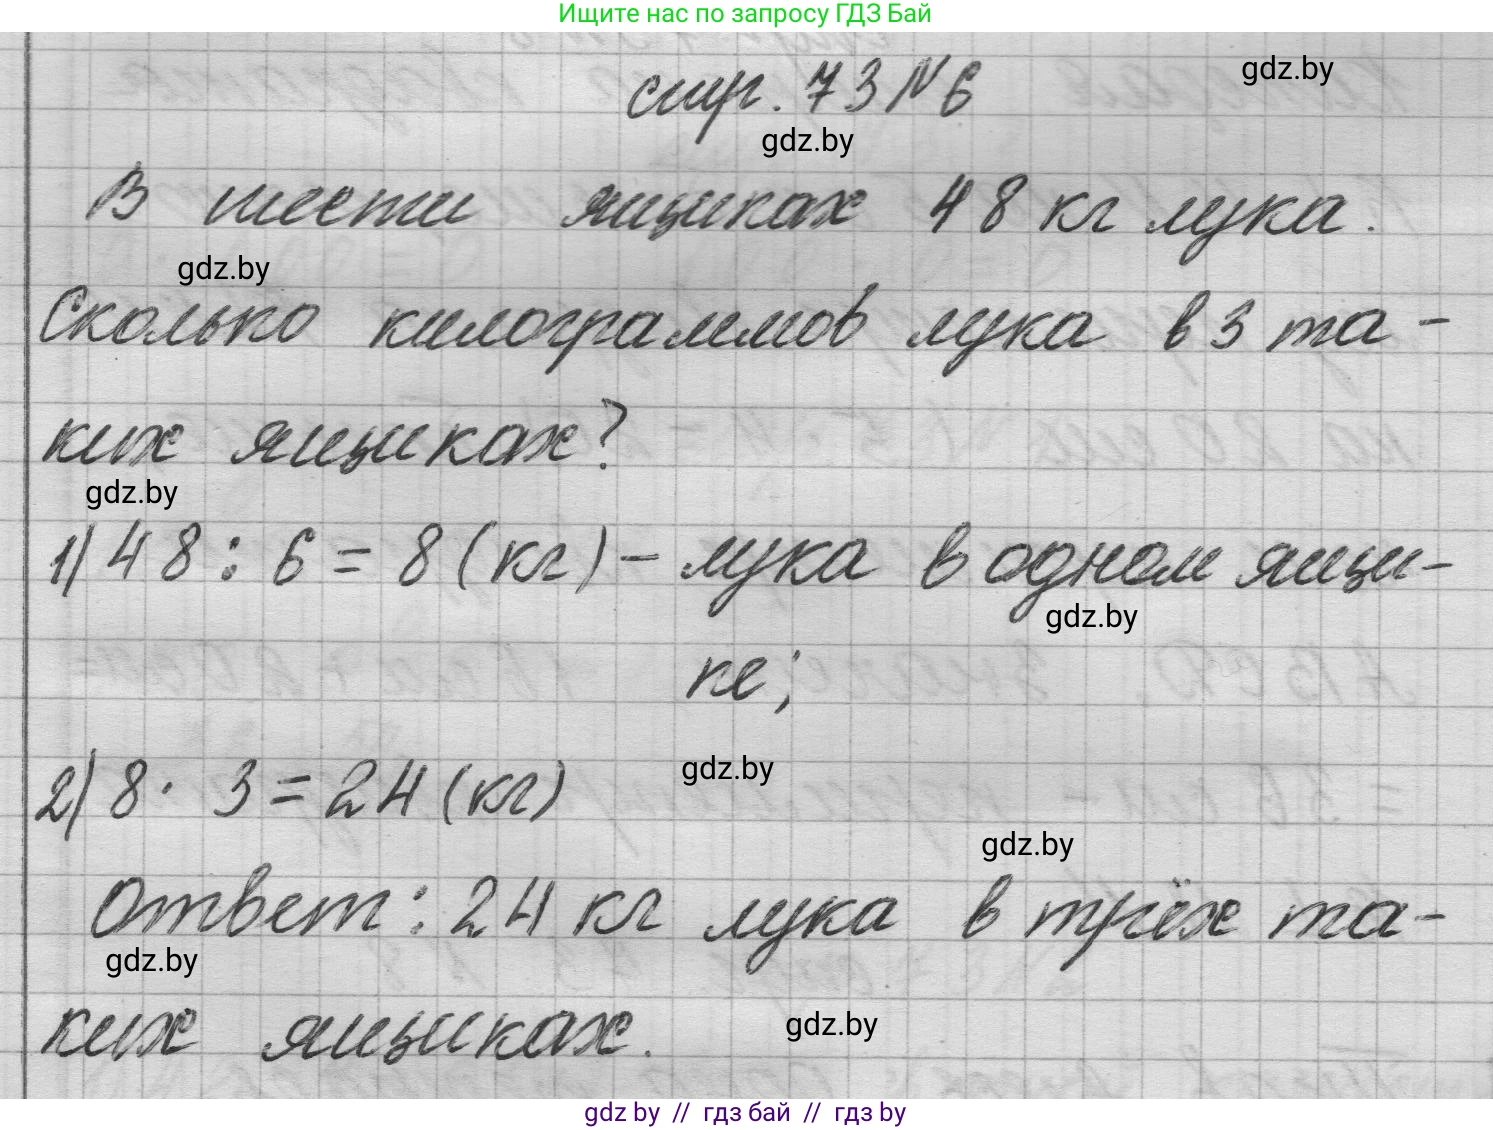 Ищите нас по запросу ГДЗ Бай
gdz.by
стр. 73 № 6
gdz.by
В шести ящиках 48 кг лука.
gdz.by
Сколько килограммов лука в 3 та-
ких ящиках?
gdz.by
1) 48 : 6 = 8 (кг) – лука в одном ящи-
gdz.by
ке;
gdz.by
2) 8 · 3 = 24 (кг)
gdz.by
Ответ: 24 кг лука в трёх та-
gdz.by
ких ящиках.
gdz.by
gdz by // гдз бай // гдз by